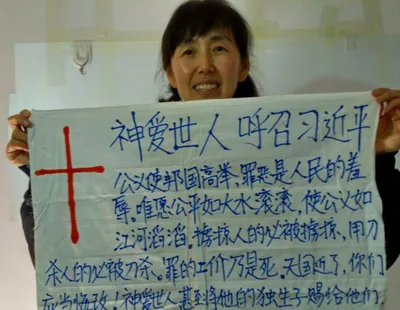 神爱世人 呼召习近平
公义使邦国高举,罪恶是人民的羞
辱。唯愿公平如大水滚滚,使公义如
江河滔滔。掳掠人的必被掳掠,用刀
杀人的必被刀杀。罪的工价乃是死。天国近了,你们
应当悔改!神爱世人甚至将他的独生子赐给他们,